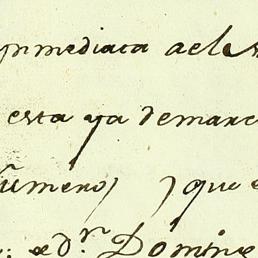 ynmediata a el
esta ya demarc
numero) que
d.n Domin